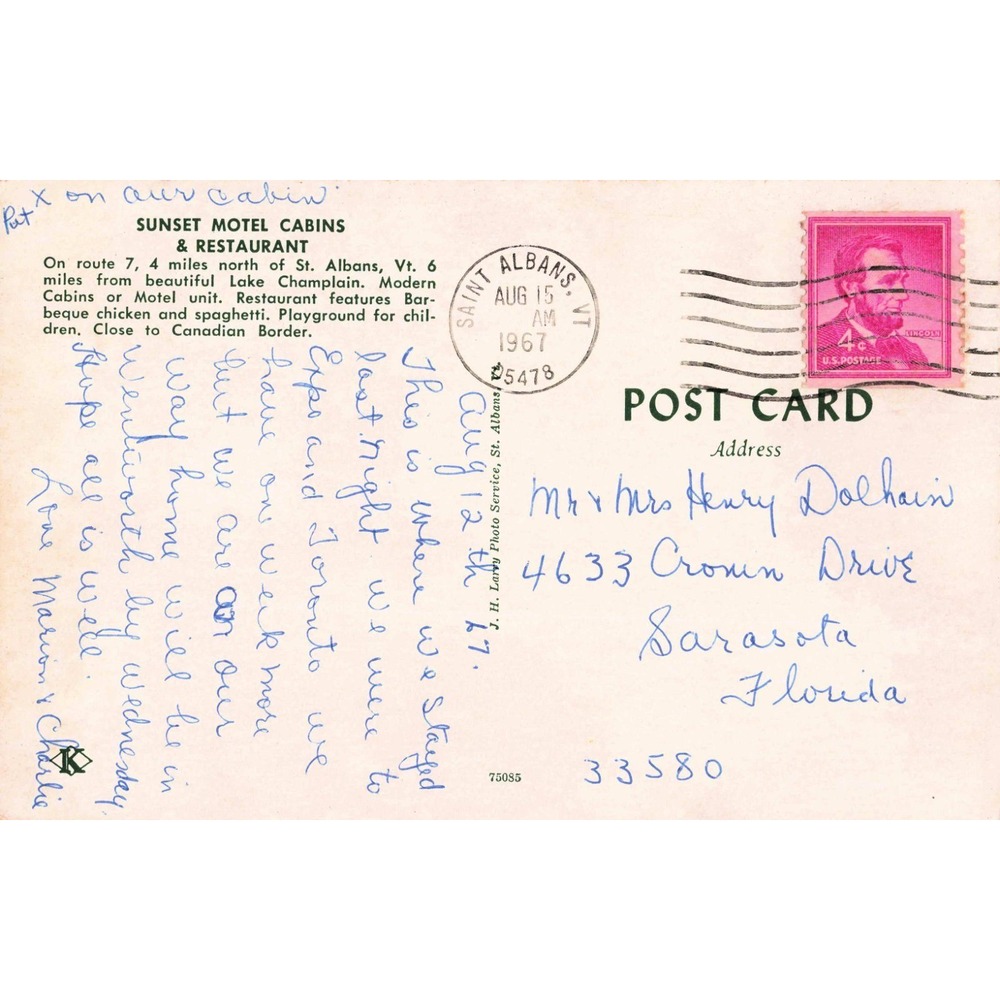 Put x on our cabin
SUNSET MOTEL CABINS
& RESTAURANT
On route 7, 4 miles north of St. Albans, Vt. 6
miles from beautiful Lake Champlain. Modern
Cabins or Motel unit. Restaurant features Bar-
beque chicken and spaghetti. Playground for chil-
dren. Close to Canadian Border.
Aug 12th 67.
This is where we stayed
last night we were to
Expo and Toronto we
have on week more
but we are on our
way home will be in
Wentworth by wednesday,
Hope all is well.
Love Marion & Charlie
K
J. H. Larry Photo Service, St. Albans, Vt.
75085
SAINT ALBANS, VT
AUG 15
AM
1967
05478
LINCOLN
4¢
U.S. POSTAGE
POST CARD
Address
Mr & Mrs Henry Dolhain
4633 Cronin Drive
Sarasota
Florida
33580